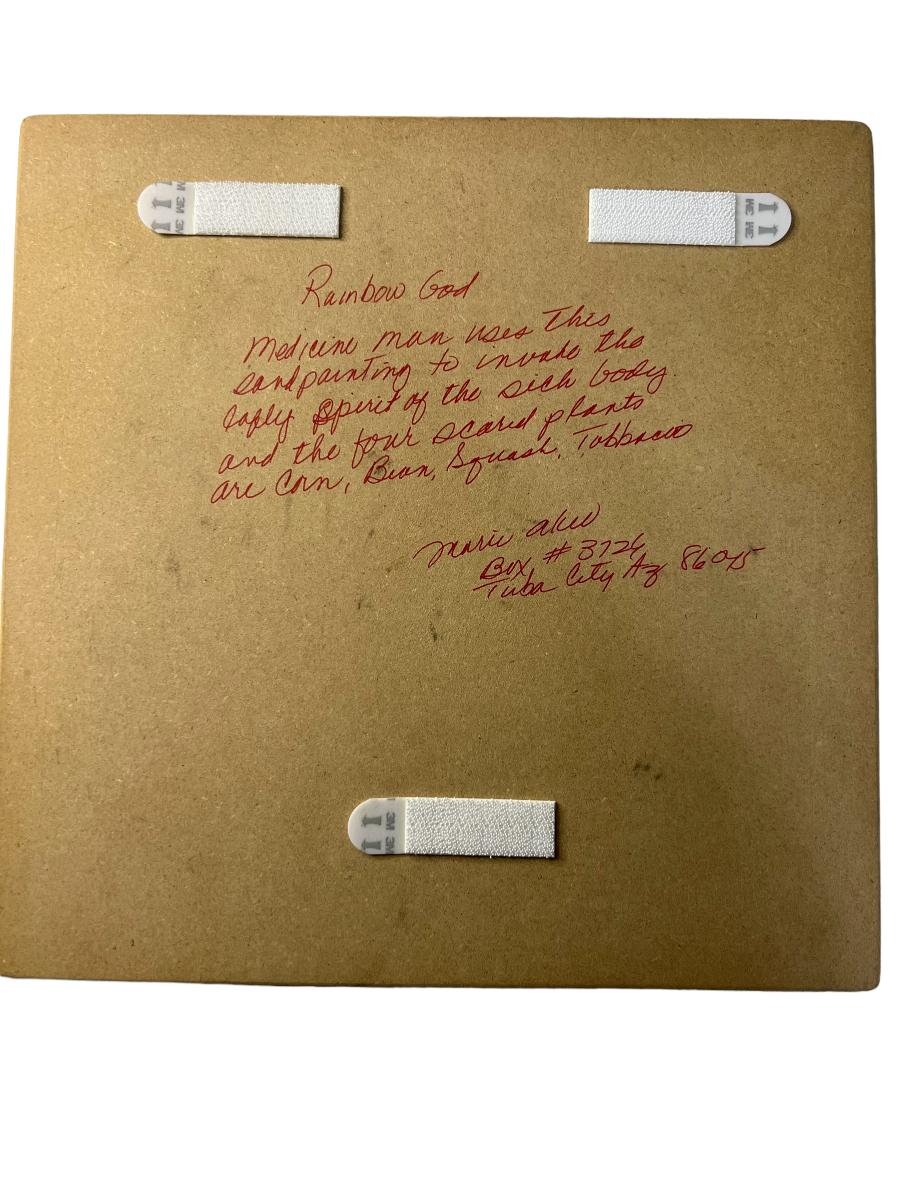 3M 3M
3M 3M
Rainbow God
Medicine man uses This
sandpainting to invoke the
spirit of the sick body.
and the four scared plants
are Corn, Bean, Squash, Tobbacco
Marie
Box # 3726
Tuba City Az
3M 3M